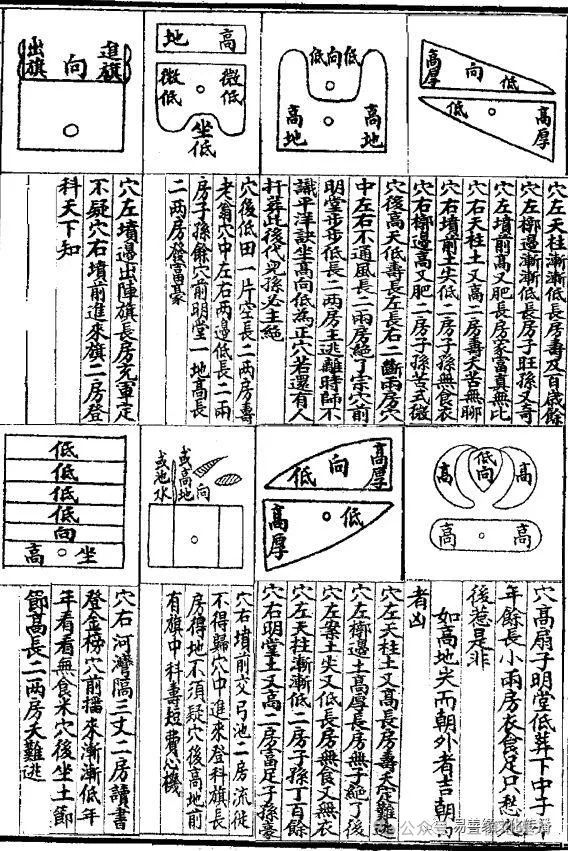 高厚 向 低
低 高厚
低向低
高地 高地
地 高
微低 微低
坐低
進旗 向 出旗
穴左天柱漸漸低長房壽及百歲餘
穴左梛邊漸漸低長房子旺孫又奇
穴左墳前高又肥長房家富真無比
穴右天柱土又高二房壽夭苦無聊
穴右墳前土尖低二房子孫無食衣
穴右梛邊高又肥二房子孫苦式微
穴後高天低壽長左長右二斷兩房穴
中左右不通風長二兩房絕了宗穴前
明堂步步低長二兩房主逃離時師不
識平洋訣坐高向低為正穴若還有人
扦葬此後代兒孫必主絕
穴後低田一片空長二兩房壽
老翁穴中左右兩邊低長二兩
房子孫餘穴前明堂一地高長
二兩房發富豪
穴左墳邊出陣旗長房充軍定
不疑穴右墳前進來旗二房登
科天下知
高 低向 高
高 高
低 向 高厚
高厚 低
或高地 向
或池水
低
低
低
低
向
高 坐
穴高扇子明堂低葬下中子
年餘長小兩房衣食足只愁
後惹是非
如高地尖而朝外者吉朝內
者凶
穴左天柱土又高長房壽夭定難逃
穴左梛邊土高厚長房無子絕了後
穴左案土尖又低長房無食又無衣
穴左天柱漸漸低二房子孫丁百餘
穴右明堂土又高二房富足子孫豪
穴右墳前交弓池二房流徙
不得歸穴中進來登科旗長
房得地不須疑穴後高地前
有旗中科壽短費心機
穴右河灣隔三丈二房讀書
登金榜穴前擋來漸漸低年
年看看無食米穴後坐土節
節高長二兩房夭難逃
公众号